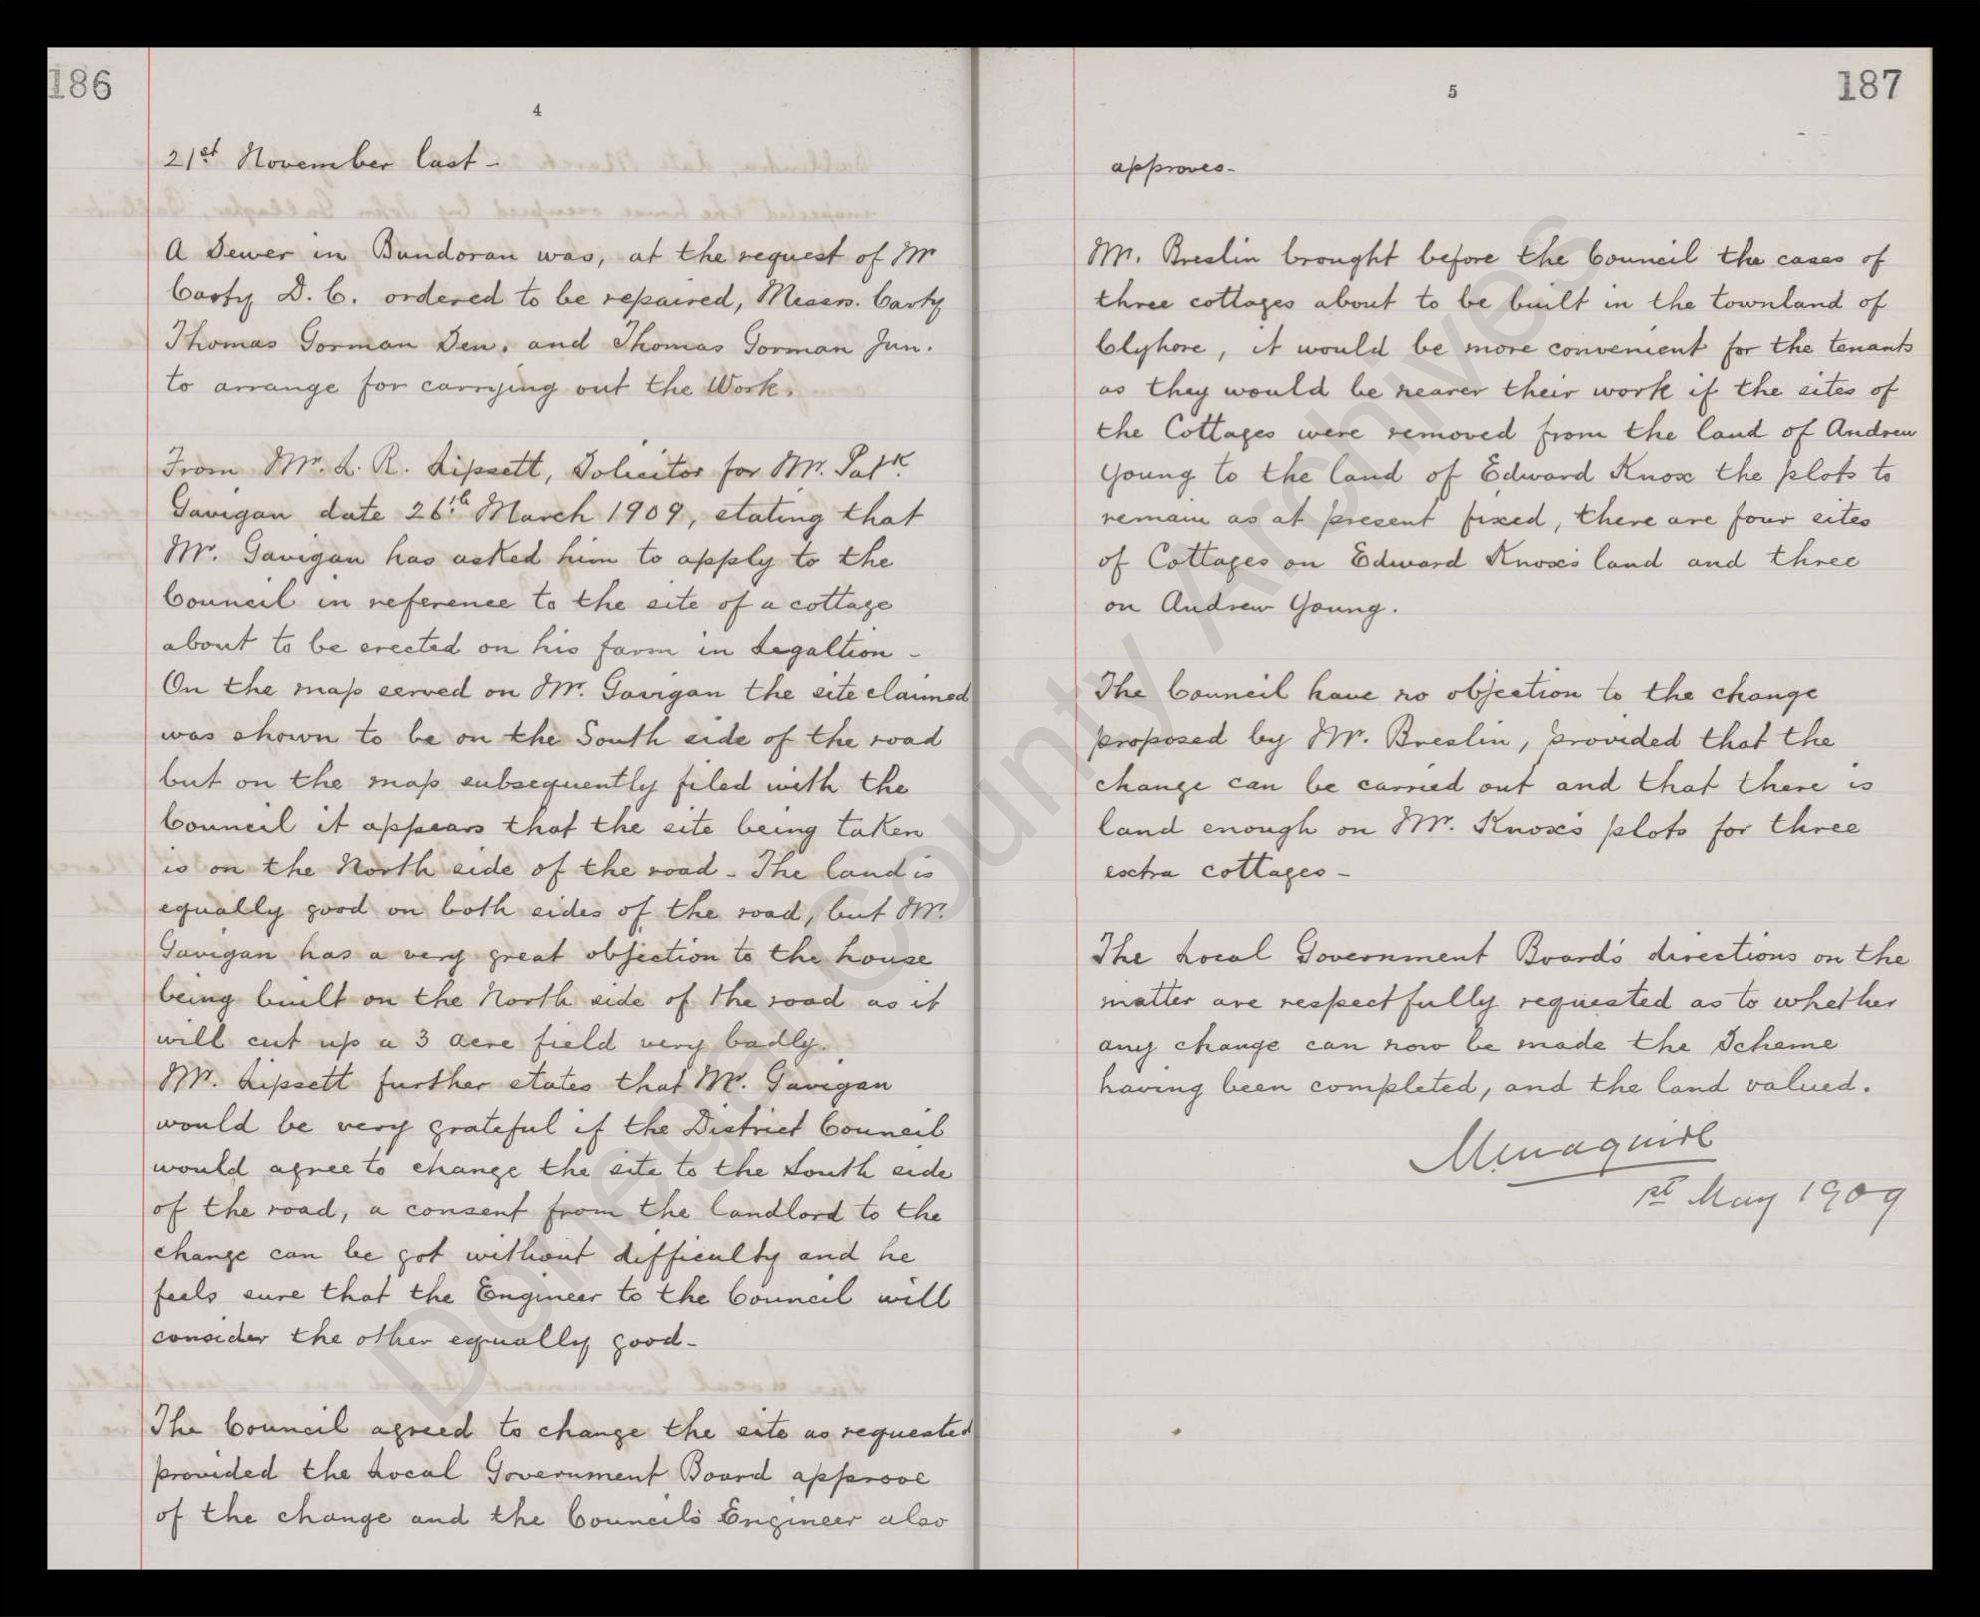 186
4
21st November last -
A Sewer in Bundoran was, at the request of Mr
Carty D. C. ordered to be repaired, Messrs. Carty
Thomas Gorman Sen. and Thomas Gorman Jun.
to arrange for carrying out the Work.
From Mr. L. R. Lipsett, Solicitor for Mr. Patk.
Gavigan date 26th March 1909, stating that
Mr. Gavigan has asked him to apply to the
Council in reference to the site of a cottage
about to be erected on his farm in Legaltion -
On the map served on Mr. Gavigan the site claimed
was shown to be on the South side of the road
but on the map subsequently filed with the
Council it appears that the site being taken
is on the North side of the road - The land is
equally good on both sides of the road, but Mr.
Gavigan has a very great objection to the house
being built on the North side of the road as it
will cut up a 3 acre field very badly.
Mr. Lipsett further states that Mr. Gavigan
would be very grateful if the District Council
would agree to change the site to the South side
of the road, a consent from the landlord to the
change can be got without difficulty and he
feels sure that the Engineer to the Council will
consider the other equally good -
The Council agreed to change the site as requested
provided the Local Government Board approve
of the change and the Council's Engineer also
187
5
approves -
Mr. Breslin brought before the Council the cases of
three cottages about to be built in the townland of
Clyhore, it would be more convenient for the tenants
as they would be nearer their work if the sites of
the Cottages were removed from the land of Andrew
Young to the land of Edward Knox the plots to
remain as at present fixed, there are four sites
of Cottages on Edward Knox's land and three
on Andrew Young.
The Council have no objection to the change
proposed by Mr. Breslin, provided that the
change can be carried out and that there is
land enough on Mr. Knox's plots for three
extra cottages -
The Local Government Board's directions on the
matter are respectfully requested as to whether
any change can now be made the Scheme
having been completed, and the land valued.
1st May 1909
Donegal County Archives